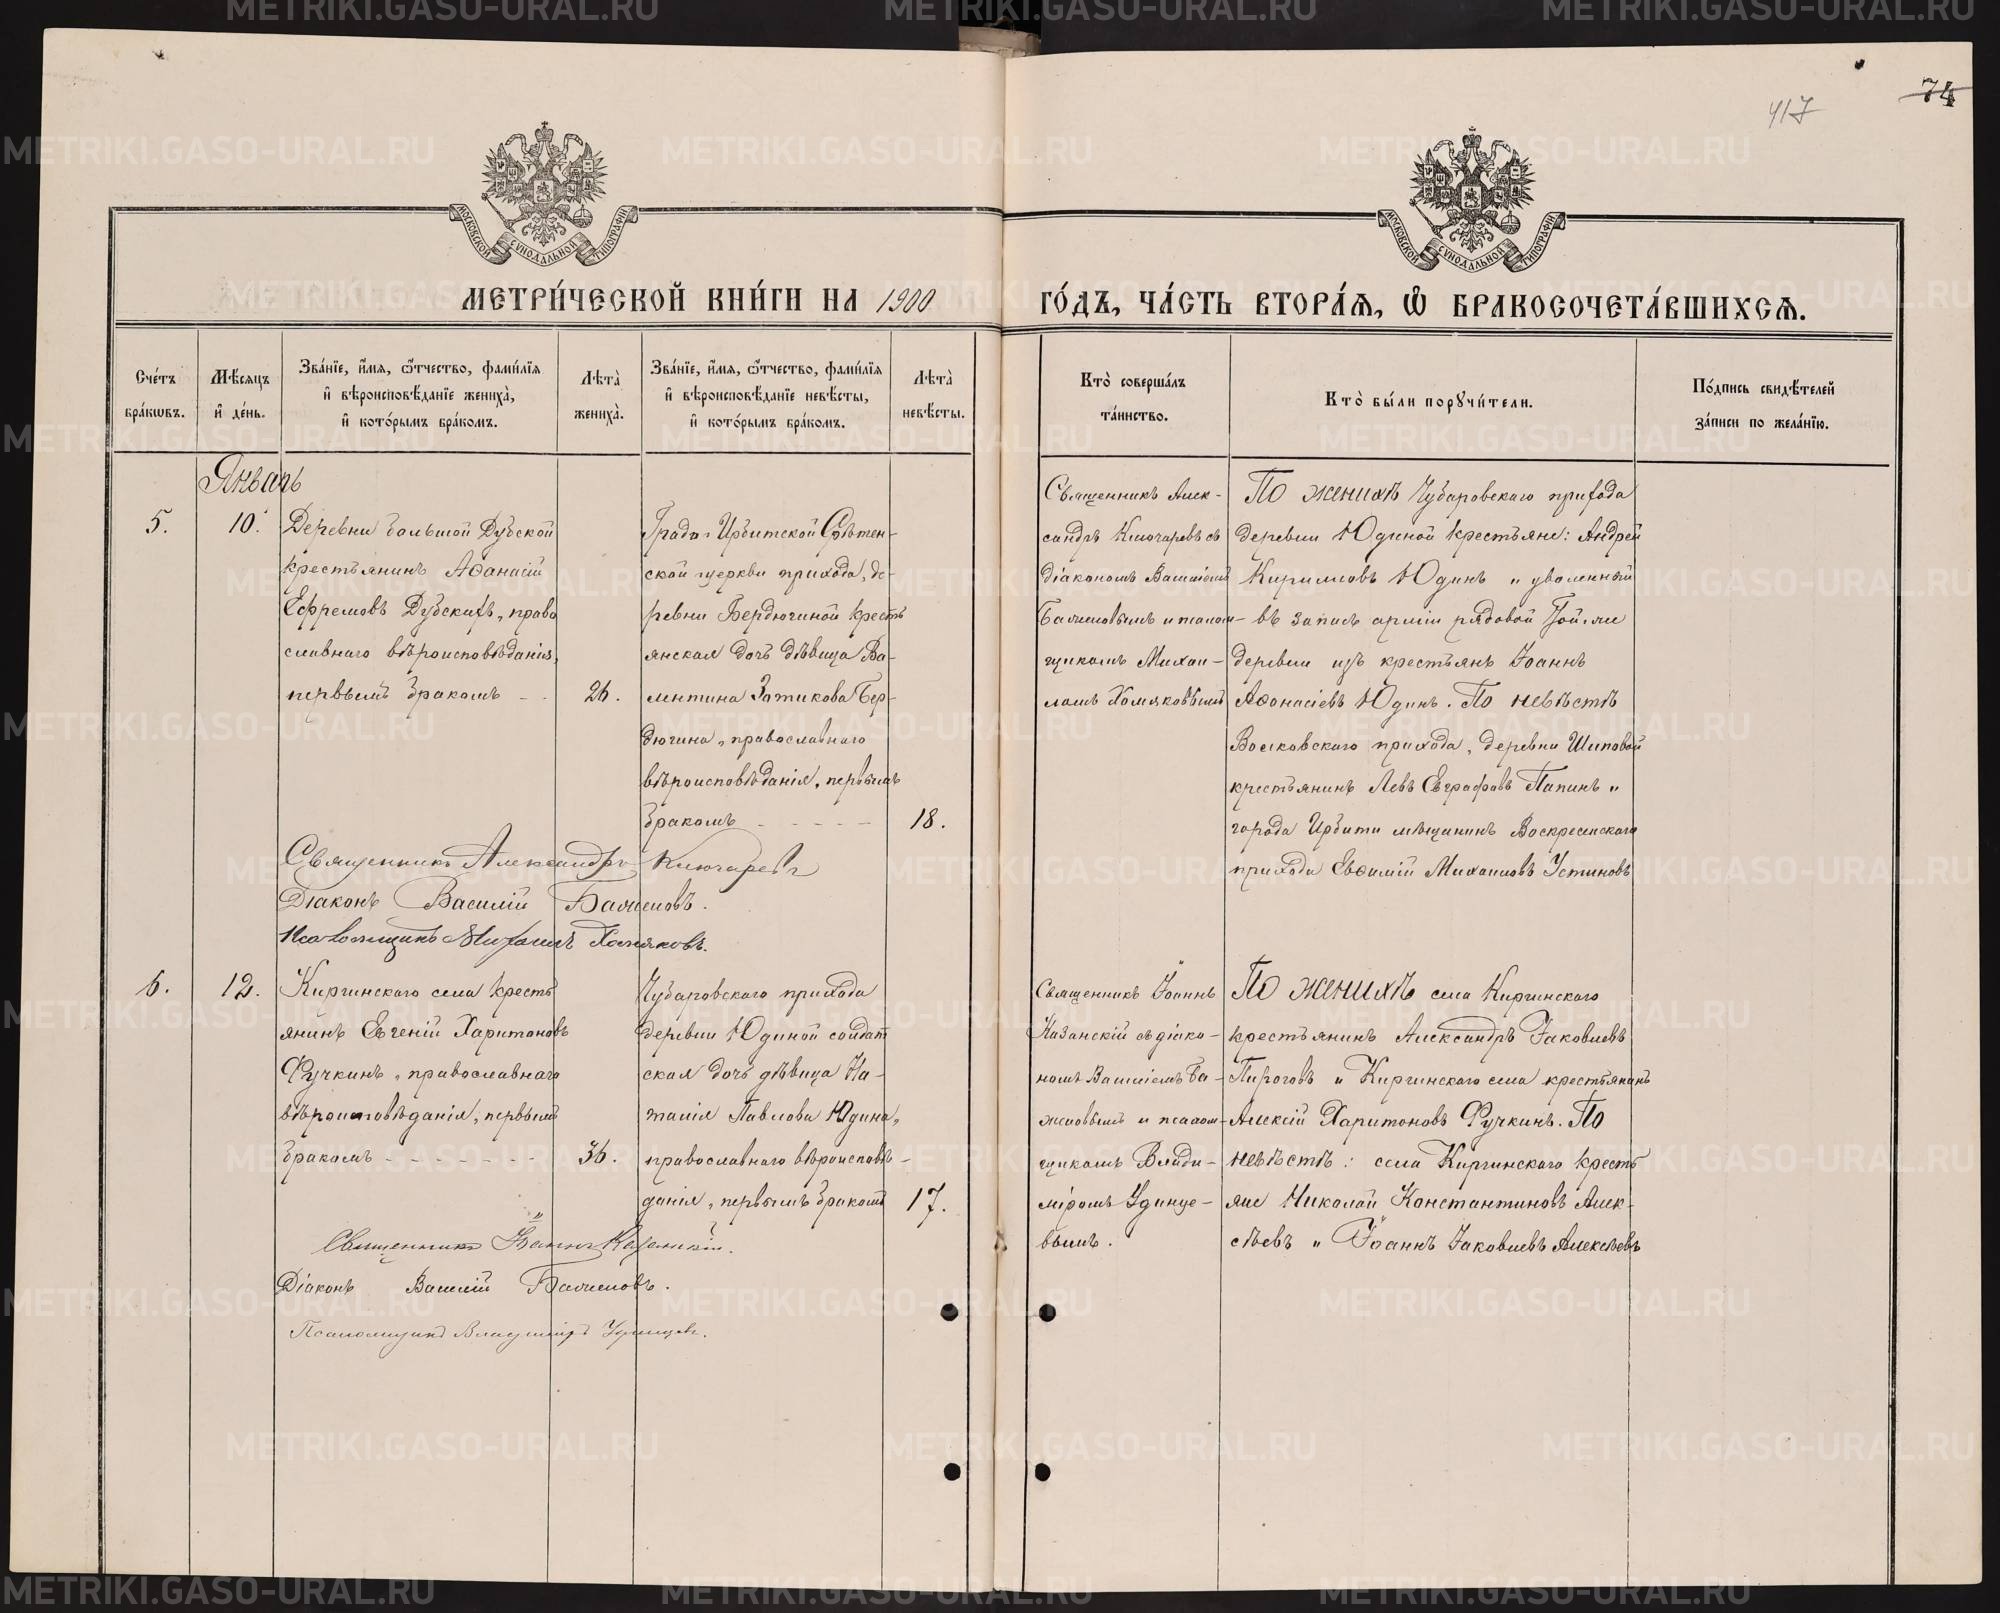 74
417
МОСКОВСКОЙ СѴНОДАЛЬНОЙ ТИПОГРАФІИ
МОСКОВСКОЙ СѴНОДАЛЬНОЙ ТИПОГРАФІИ
МЕТРИ́ЧЕСКОЙ КНИ́ГИ НА 1900
ГО́ДЪ, ЧА́СТЬ ВТОРА́Ѧ, Ѡ҆ БРАКОСОЧЕТА́ВШИХСѦ.
Сче́тъ
бра́кѡвъ.
Мѣ́сяцъ
и҆ де́нь.
Зва́нїе, и҆́мя, ѻ҆́тчество, фами́лїя
и҆ вѣроисповѣ́данїе жениха̀,
и҆ кото́рымъ бра́комъ.
Лѣта̀
жениха̀.
Зва́нїе, и҆́мя, ѻ҆́тчество, фами́лїя
и҆ вѣроисповѣ́данїе невѣ́сты,
и҆ кото́рымъ бра́комъ.
Лѣта̀
невѣ́сты.
Кто̀ соверша́лъ
та́инство.
Кто̀ бы́ли порꙋчи́тели.
По́дпись свидѣ́телей
за́писи по жела́нїю.
Январь
5.
10.
Деревни большой Дубской
крестьянинъ Аѳанасій
Ефремовъ Дубскихъ, право
славнаго вѣроисповѣданія,
первымъ бракомъ - -
26.
Града Ирбитской Срѣтен-
ской церкви прихода, де-
ревни Бердюгиной кресть
янская дочь дѣвица Ва-
лентина Затикова Бер-
дюгина, православнаго
вѣроисповѣданія, первымъ
бракомъ - - - - -
18.
Священникъ Алек-
сандръ Ключаревъ съ
діакономъ Василіемъ
Балакинымъ и псалом-
щикомъ Михаи-
ломъ Хомяковымъ
По женихѣ Чубаровскаго прихода
деревни Юдиной крестьяне: Андрей
Кирилловъ Юдинъ и уволенный
въ запасъ арміи рядовой той-же
деревни изъ крестьянъ Іоаннъ
Аѳонасіевъ Юдинъ. По невѣстѣ
Волковскаго прихода, деревни Шиповой
крестьянинъ Левъ Евграфовъ Папинъ и
города Ирбити мѣщанинъ Воскресенскаго
прихода Евѳимій Михаиловъ Устиновъ
Священникъ Александръ Ключаревъ
Діаконъ Василій
Псаломщикъ Михаилъ Хомяковъ.
6.
12.
Киргинскаго села кресть
янинъ Евгеній Харитоновъ
Фучкинъ, православнаго
вѣроисповѣданія, первымъ
бракомъ - - - - - - -
36.
Чубаровскаго прихода
деревни Юдиной солдат
ская дочь дѣвица На-
талія Павлова Юдина,
православнаго вѣроисповѣ-
данія, первымъ бракомъ
17.
Священникъ Іоаннъ
Казанскій съ діако-
номъ Василіемъ
и псалом-
щикомъ Влади-
міромъ Удинце-
вымъ.
По женихѣ села Киргинскаго
крестьянинъ Александръ Іаковлевъ
Пироговъ и Киргинскаго села крестьянинъ
Алексій Харитоновъ Фучкинъ. По
невѣстѣ: села Киргинскаго кресть
яне Николай Константиновъ Алек-
сѣевъ и Іоаннъ Іаковлевъ Алексѣевъ
Священникъ Іоаннъ Казанскій.
Діаконъ Василій
Псаломщикъ Владиміръ Удинцевъ.
METRIKI.GASO-URAL.RU